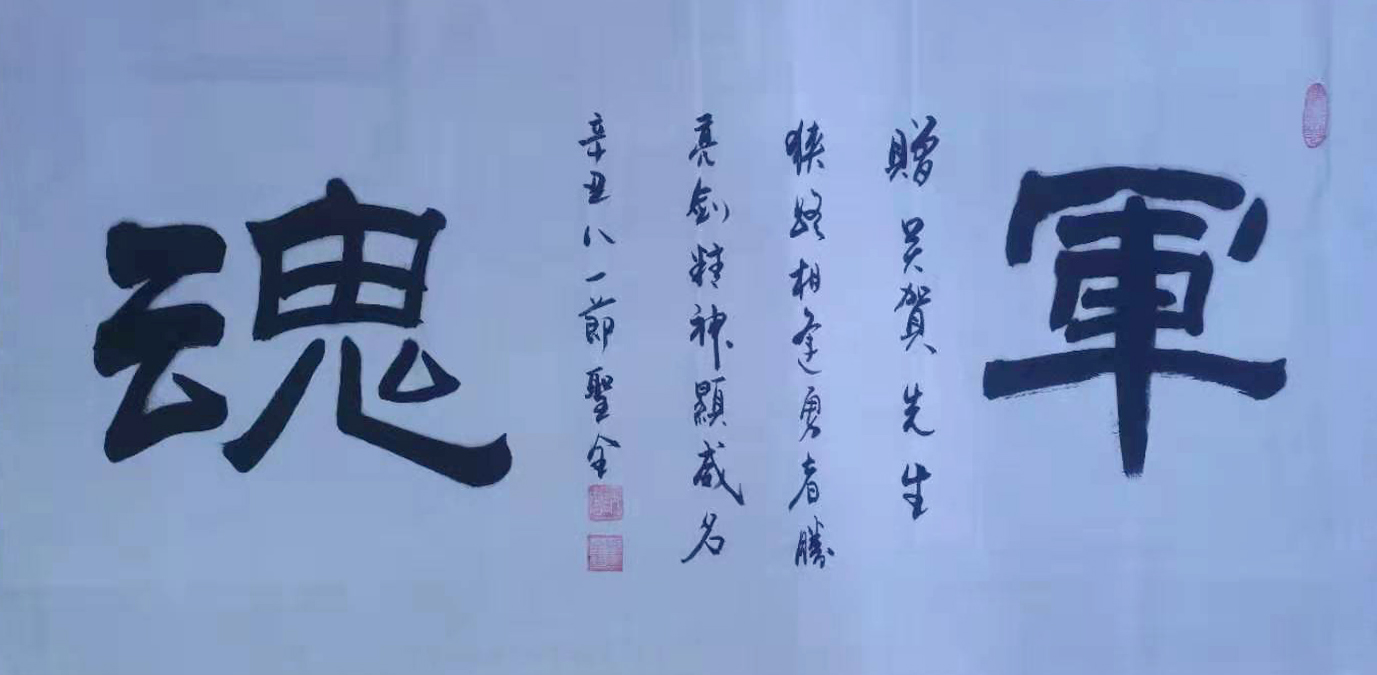 軍
贈吴賀先生
狹路相逢勇者勝
亮劍精神顯威名
辛丑八一節聖全
魂